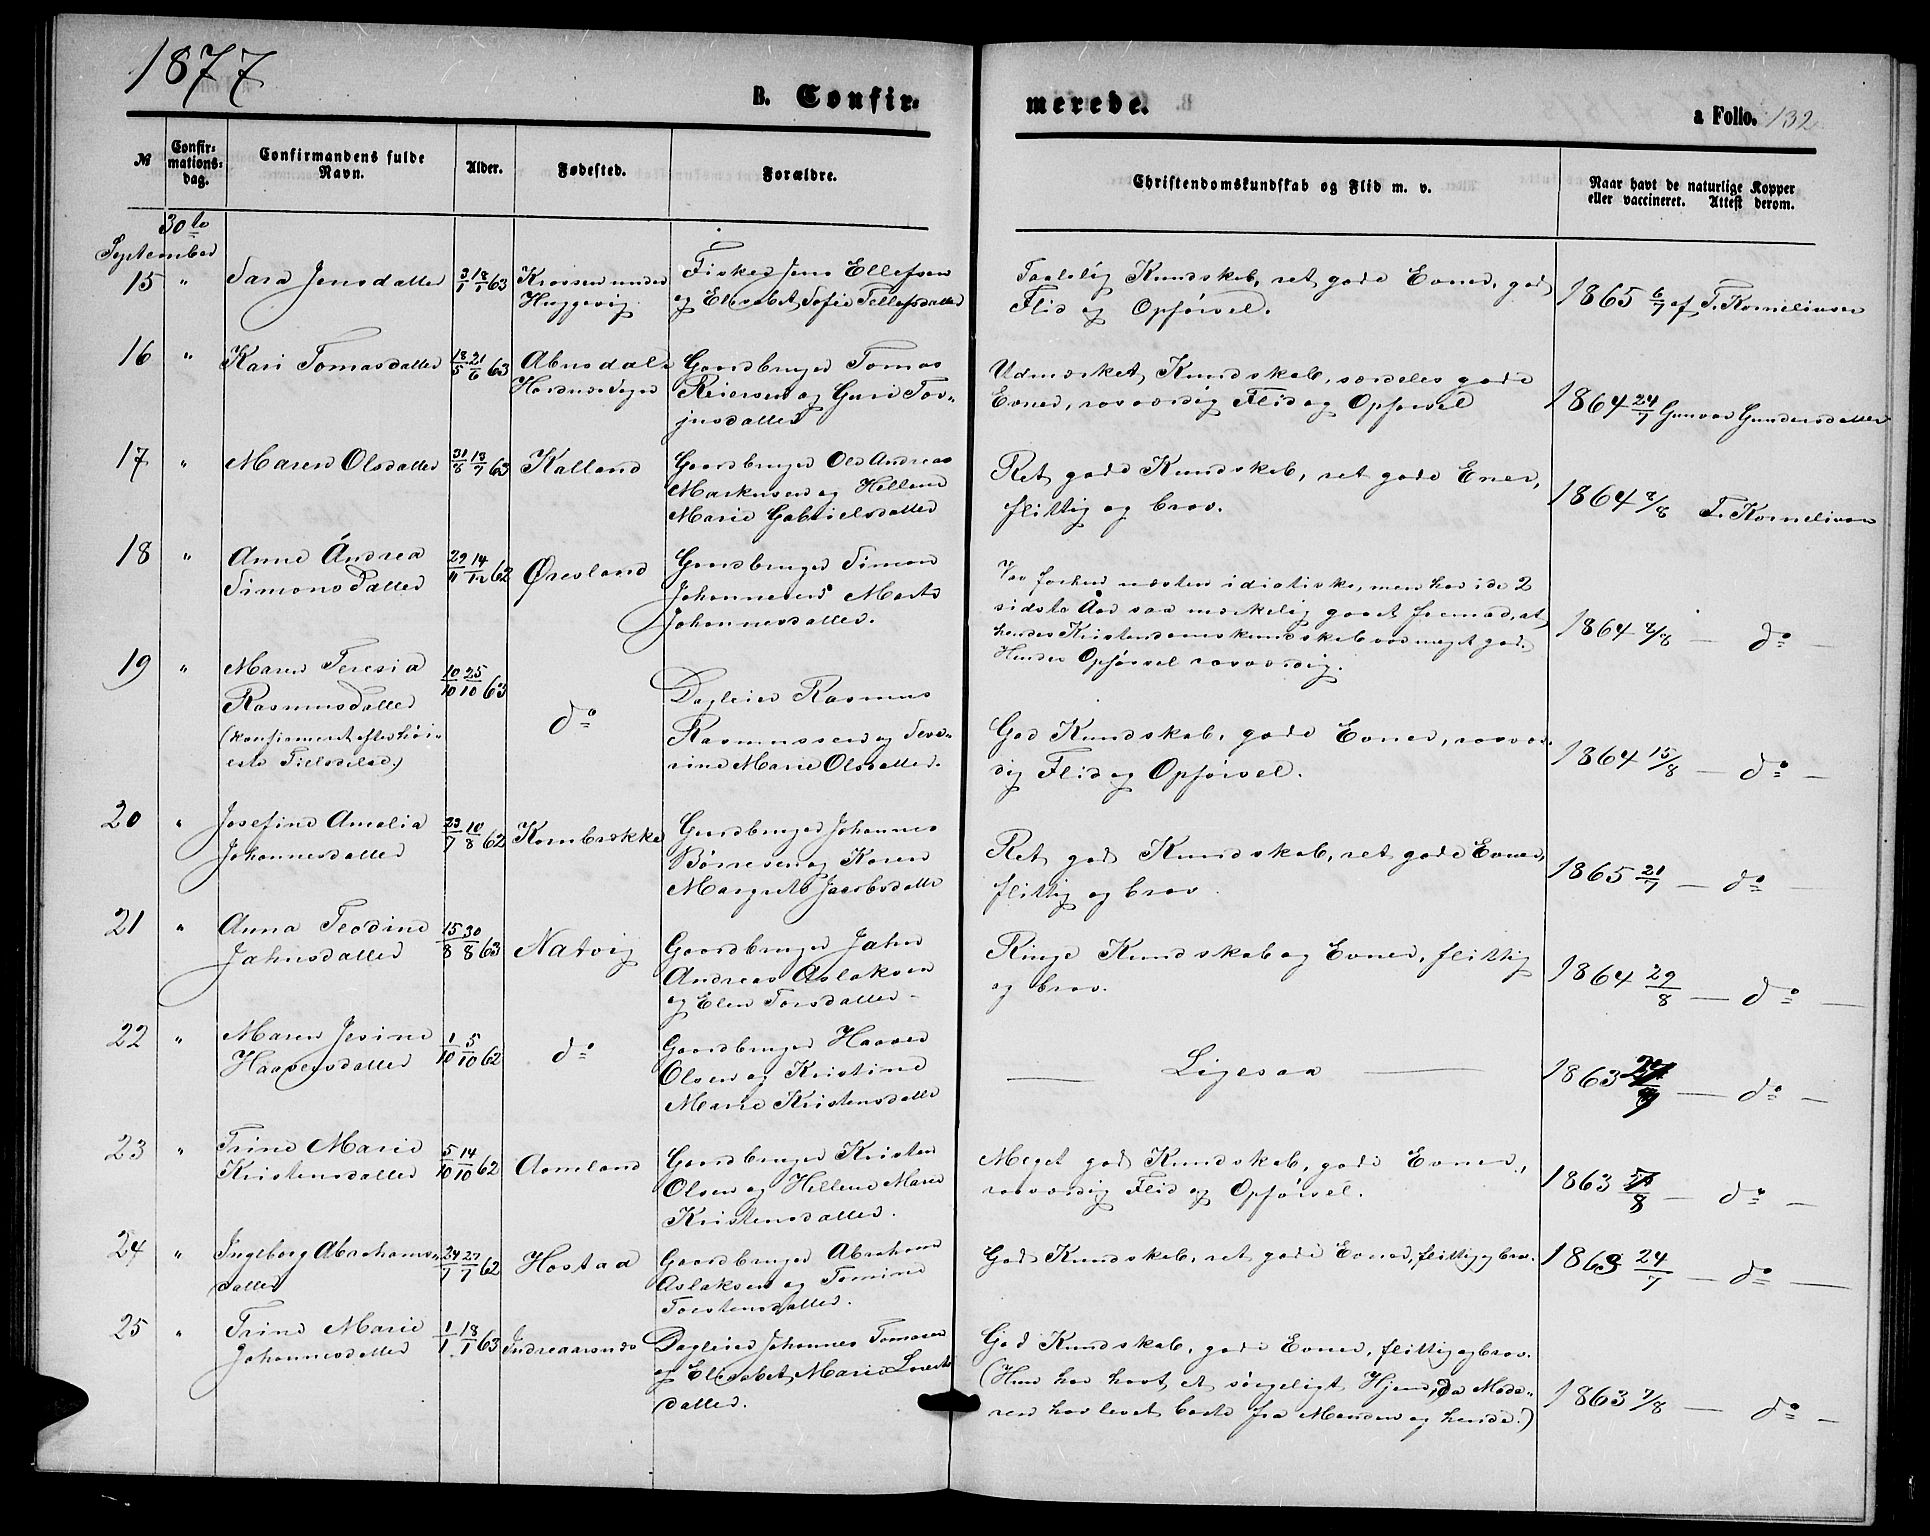 1877
B. Confir-
merede.
a Folio. 132
№
Confir-
mations-
dag.
Confirmandens fulde
Navn.
Alder.
Fødested.
Forældre.
Christendomskundskab og Flid m. v.
Naar havt de naturlige Kopper
eller vaccineret. Attest derom.
30te
September
15 " Sara Jensdatter 3/1 18/1 63 Krossen under
Huggevig
Fisker Jens Ellefsen
og Elisabet Sofie Tellefsdatter
Taalelig Kundskab, ret gode Evner, god
Flid og Opførsel.
1865 6/7 af T. Kornelivsen
16 " Kari Tomasdatter 18/5 21/6 63
Gaardbruger Tomas
Reiersen og Guro Tor-
jusdatter
Udmærket Kundskab, særdeles gode
Evner, rosværdig Flid og Opførsel
1864 24/7 Gunvor Gundersdatter
17 " Maren Olsdatter 31/8 13/7 63 Kalland
Gaardbruger Ole Andreas
Markussen og Hellene
Marie Gabrielsdatter
Ret gode Kundskab, ret gode Evner,
flittig og brav.
1864 8/8 T. Kornelivsen
18 " Anne Andrea
Simonsdatter
29/11 14/12 62 Øresland
Gaardbruger Simon
Johannesen Marte
Johannesdatter.
Var forhen næsten idiotiske, men har i de 2
sidste Aar saa mærkelig gaaet fremad, at
hendes Kristendomskundskab var meget god.
Hendes Opførsel rosværdig.
1864 8/8 — do —
19 " Maren Teresia
Rasmusdatter
(konfirmeret efter høi-
este Tilladelse)
10/10 25/10 63 do
Dagleier Rasmus
Rasmussen og Seve-
rine Marie Olsdatter.
God Kundskab, gode Evner, rosvær-
dig Flid og Opførsel.
1864 15/8 — do —
20 " Josefine Amalia
Johannesdatter
23/7 10/8 62 Kornbrække
Gaardbruger Johannes
Børresen og Karen
Margrete Jacobsdatter
Ret god Kundskab, ret gode Evner,
flittig og brav.
1865 21/7 — do —
21 " Anna Teodine
Jahnsdatter
15/8 30/8 63 Natvig
Gaardbruger Jahn
Andreas Aslaksen
og Elen Torsdatter
Ringe Kundskab og Evner, flittig
og brav.
1864 29/8 — do —
22 " Maren Jesine
Haaversdatter
1/10 5/10 62 do
Gaardbruger Haaver
Olsen og Kristine
Marie Kristensdatter
— Ligesaa —
1863 — do —
23 " Trine Marie
Kristensdatter
5/10 14/10 62 Aamland
Gaardbruger Kristen
Olsen og Hellene Marie
Kristensdatter.
Meget god Kundskab, gode Evner,
rosværdig Flid og Opførsel.
1863 — do —
24 " Ingeborg Abrahams-
datter
24/7 27/7 62 Høstad
Gaardbruger Abraham
Aslaksen og Tomine
Torstensdatter.
God Kundskab, ret gode Evner, flittig og brav.
1863 24/7 — do —
25 " Trine Marie
Johannesdatter
1/1 18/1 63 Indreaarsnes
Dagleier Johannes Tomasen
og Elisabet Marie Lorents
datter.
God Kundskab, gode Evner, flittig og brav.
(Hun har havt et sørgeligt Hjem, da Mode-
ren har levet borte fra Manden og hende.)
1863 7/8 — do —